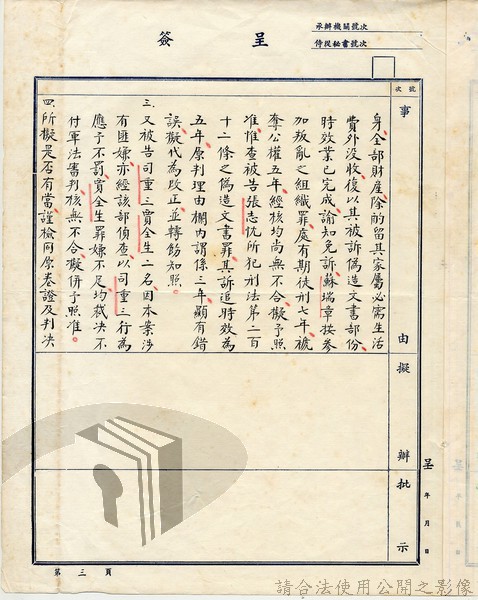 簽呈
承辦機關號次
侍從秘書號次
號次
事由
擬辦
批示
身、全部財產除酌留其家屬必需生活
費外沒收、復以其被訴偽造文書部份
時效業已完成諭知免訴、蘇瑞章於參
加叛亂之組織罪處有期徒刑七年、褫
奪公權五年、經核均尚無不合、擬予照
准、惟查被告張志忱所犯刑法第二百
十二條之偽造文書罪、其訴追時效為
五年、原判理由欄內謂係三年、顯有錯
誤、擬代為改正、並轉飭知照。
三、又被告司重三賈全生二名、因本案涉
有匪嫌、亦經該部偵查、以司重三行為
應予不罰、賈全生罪嫌不足、均裁決不
付軍法審判、核無不合、擬併予照准。
四、所擬是否有當、謹檢同原卷證及判決
呈 年 月 日
第三頁
請合法使用公開之影像